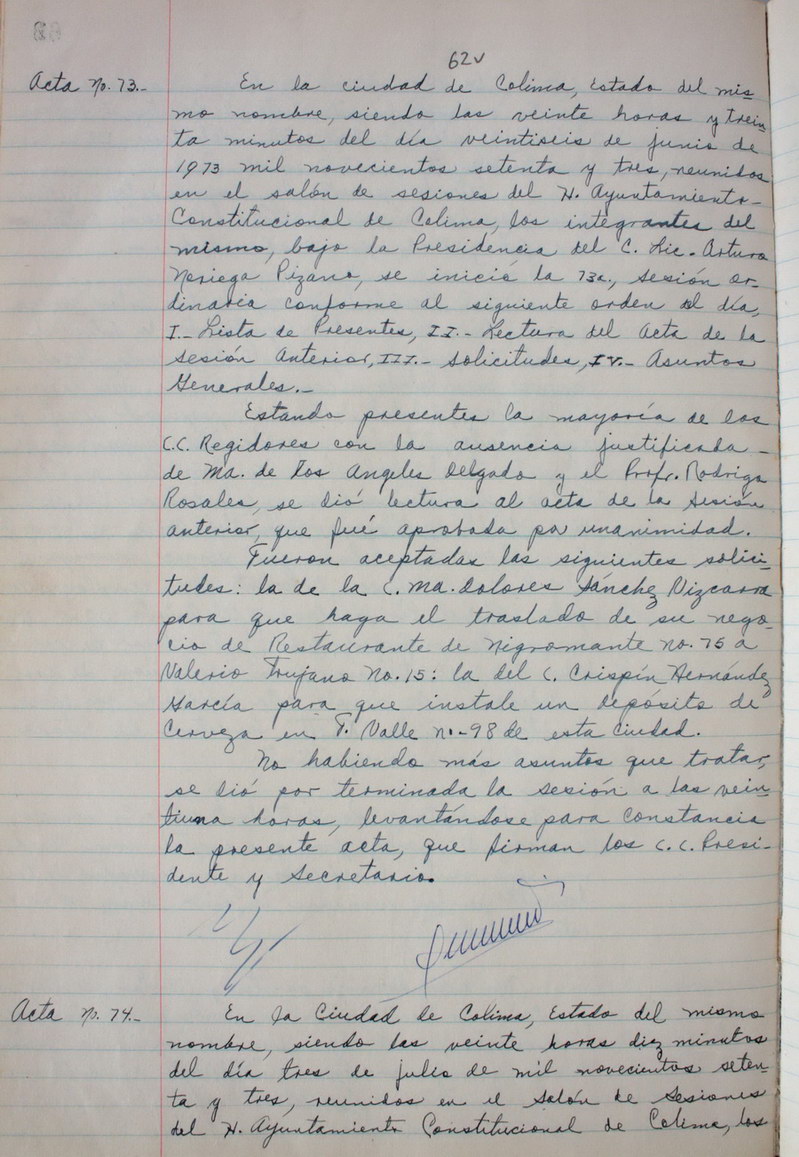 62v
Acta No. 73.- En la ciudad de Colima, Estado del mis-
mo nombre, siendo las veinte horas y trein-
ta minutos del día veintiseis de junio de
1973 mil novecientos setenta y tres, reunidos
en el salón de sesiones del H. Ayuntamiento-
Constitucional de Colima, los integrantes del
mismo, bajo la Presidencia del C. Lic. Arturo
Noriega Pizano, se inició la 73a, sesión or-
dinaria conforme al siguiente orden del día,
I.- Lista de Presentes, II.- Lectura del Acta de la
sesión Anterior, III.- Solicitudes, IV.- Asuntos
Generales.-
Estando presentes la mayoría de los
C.C. Regidores con la ausencia justificada -
de Ma. de Los Angeles Delgado y el Profr. Rodrigo
Rosales, se dió lectura al acta de la sesión
anterior, que fué aprobada por unanimidad.
Fueron aceptadas las siguientes solici-
tudes: la de la C. Ma. Dolores Sánchez Vizcarra
para que haga el traslado de su nego-
cio de Restaurante de Nigromante No. 75 a
Valerio Trujano No. 15: la del C. Crispín Hernández
García para que instale un depósito de
Cerveza en F. Valle No-98 de esta Ciudad.
No habiendo más asuntos que tratar,
se dió por terminada la sesión a las vein-
tiuna horas, levantándose para constancia
la presente acta, que firman los C.C. Presi-
dente y Secretario.
Acta No. 74.- En la Ciudad de Colima, Estado del mismo
nombre, siendo las veinte horas diez minutos
del día tres de julio de mil novecientos seten-
ta y tres, reunidos en el Salón de Sesiones
del H. Ayuntamiento Constitucional de Colima, los